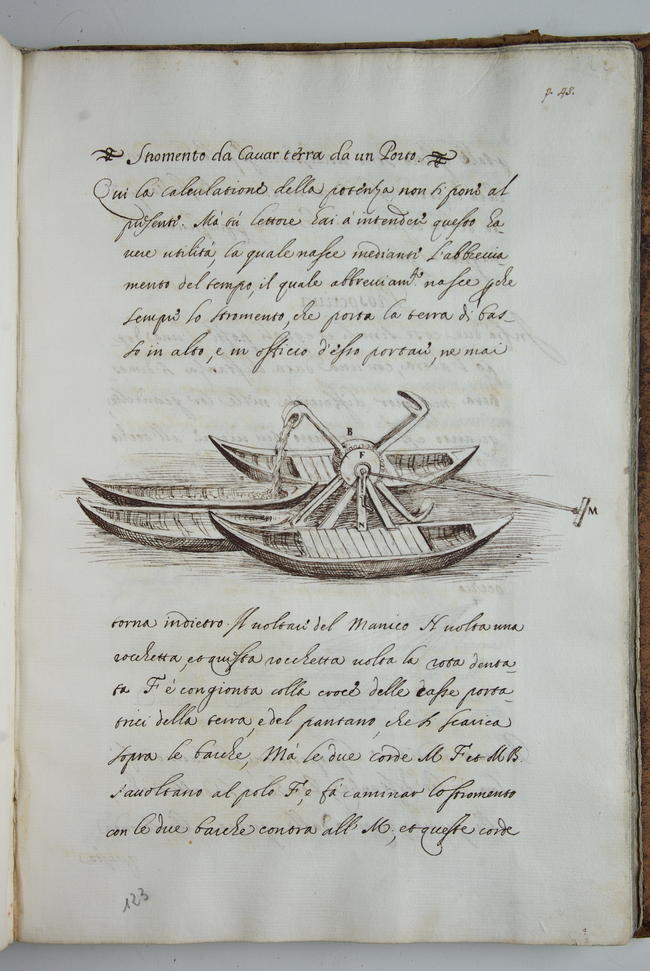 p. 48.
Stromento da Cavar terra da un Porto.
Qui la calculatione della potenza non si pone al
presente. Mà tù lettore hai à intendere questo ha-
vere utilità la quale nasce mediante l'abbrevia
mento del tempo, il quale abbreviam.to nasce p che
sempre lo stromento, che porta la terra di bas-
so in alto, e in officio d'esso portare, ne mai
B
F
N
M
torna indietro. Il voltare del Manico N volta una
rocchetta, et questa rocchetta volta la rota denta-
ta F è congionta colla croce delle casse porta-
trici della terra, e del pantano, che si scarica
sopra le barche, Mà le due corde M F et M B.
s'avoltano al polo F, e fà caminar lo stromento
con le due barche contra all' M, et queste corde
123